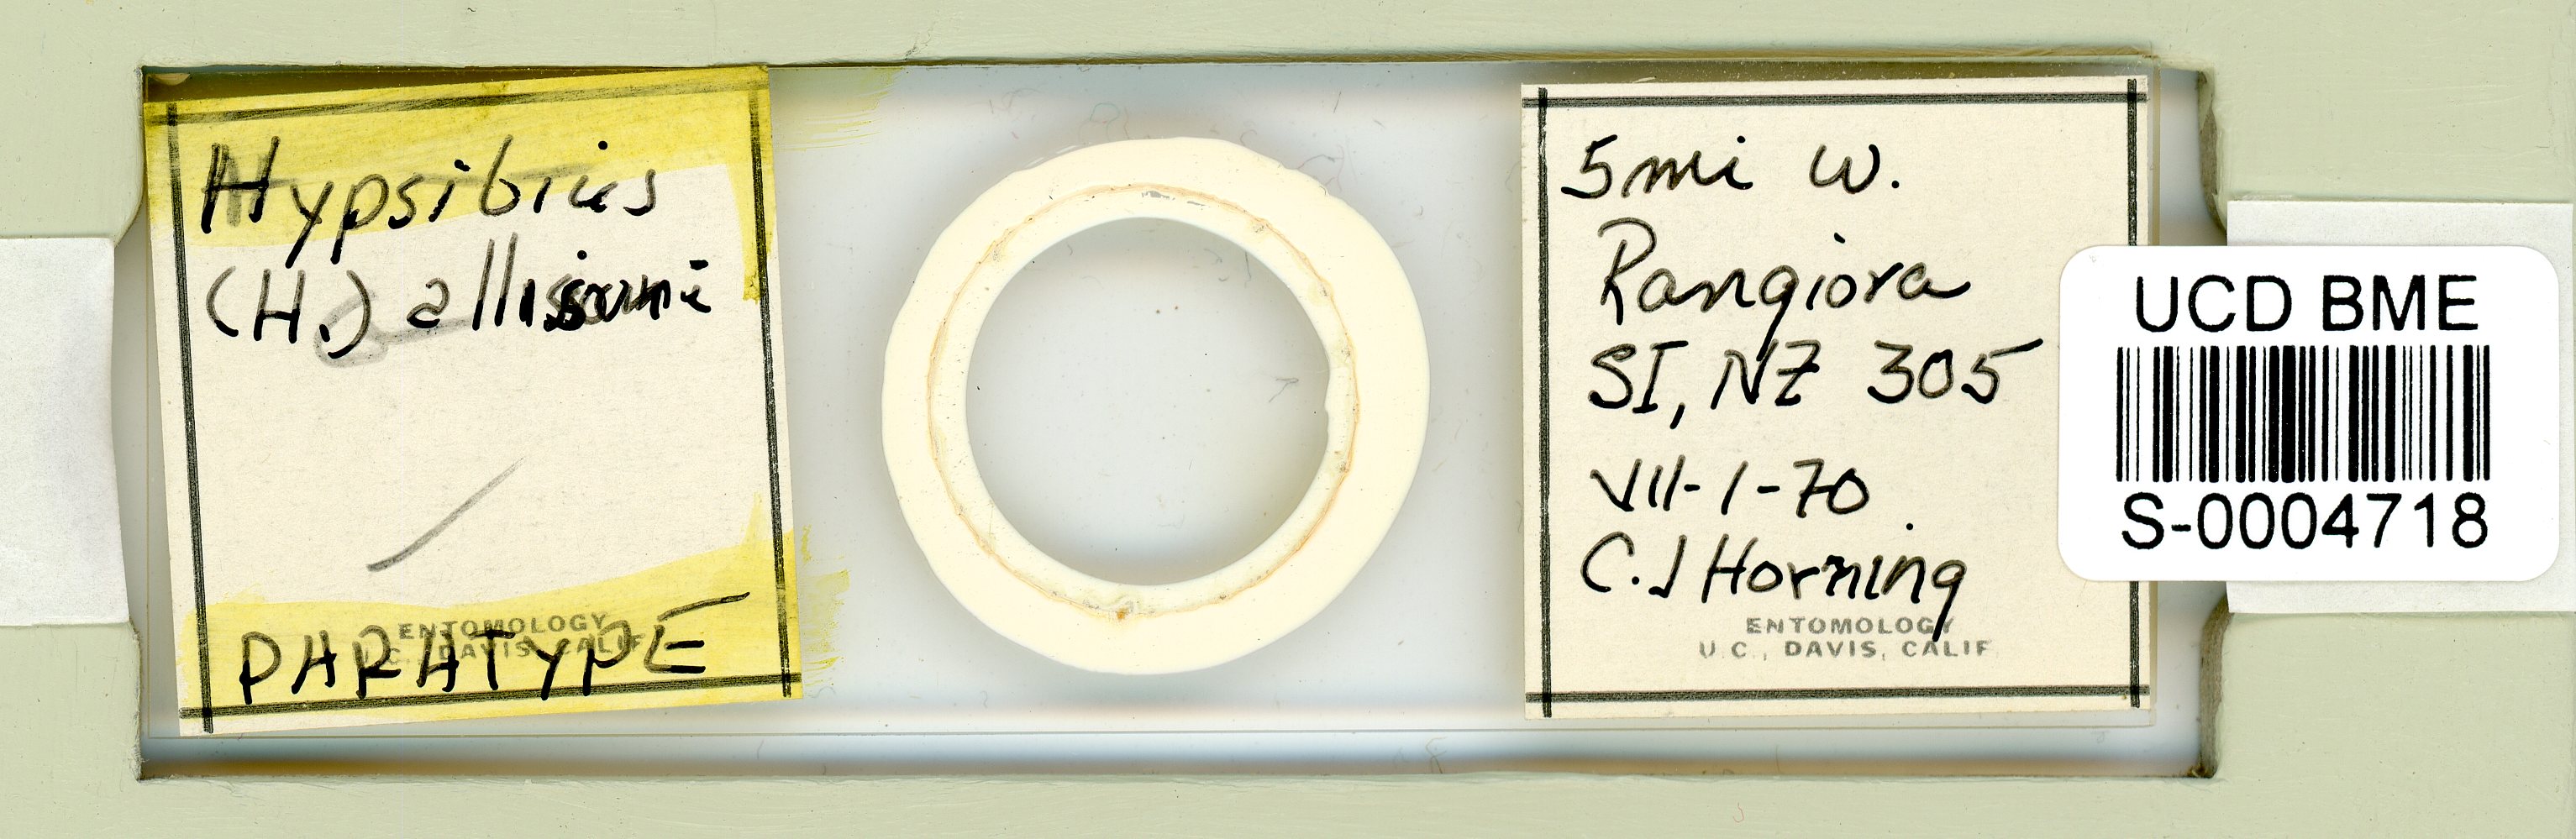 Hypsibius
(H.) allisoni
ENTOMOLOGY
U.C., DAVIS, CALIF
PARATYPE
5mi W.
Rangiora
SI, NZ 305
VII-1-70
C.J Horning
ENTOMOLOGY
U.C., DAVIS, CALIF
UCD BME
S-0004718